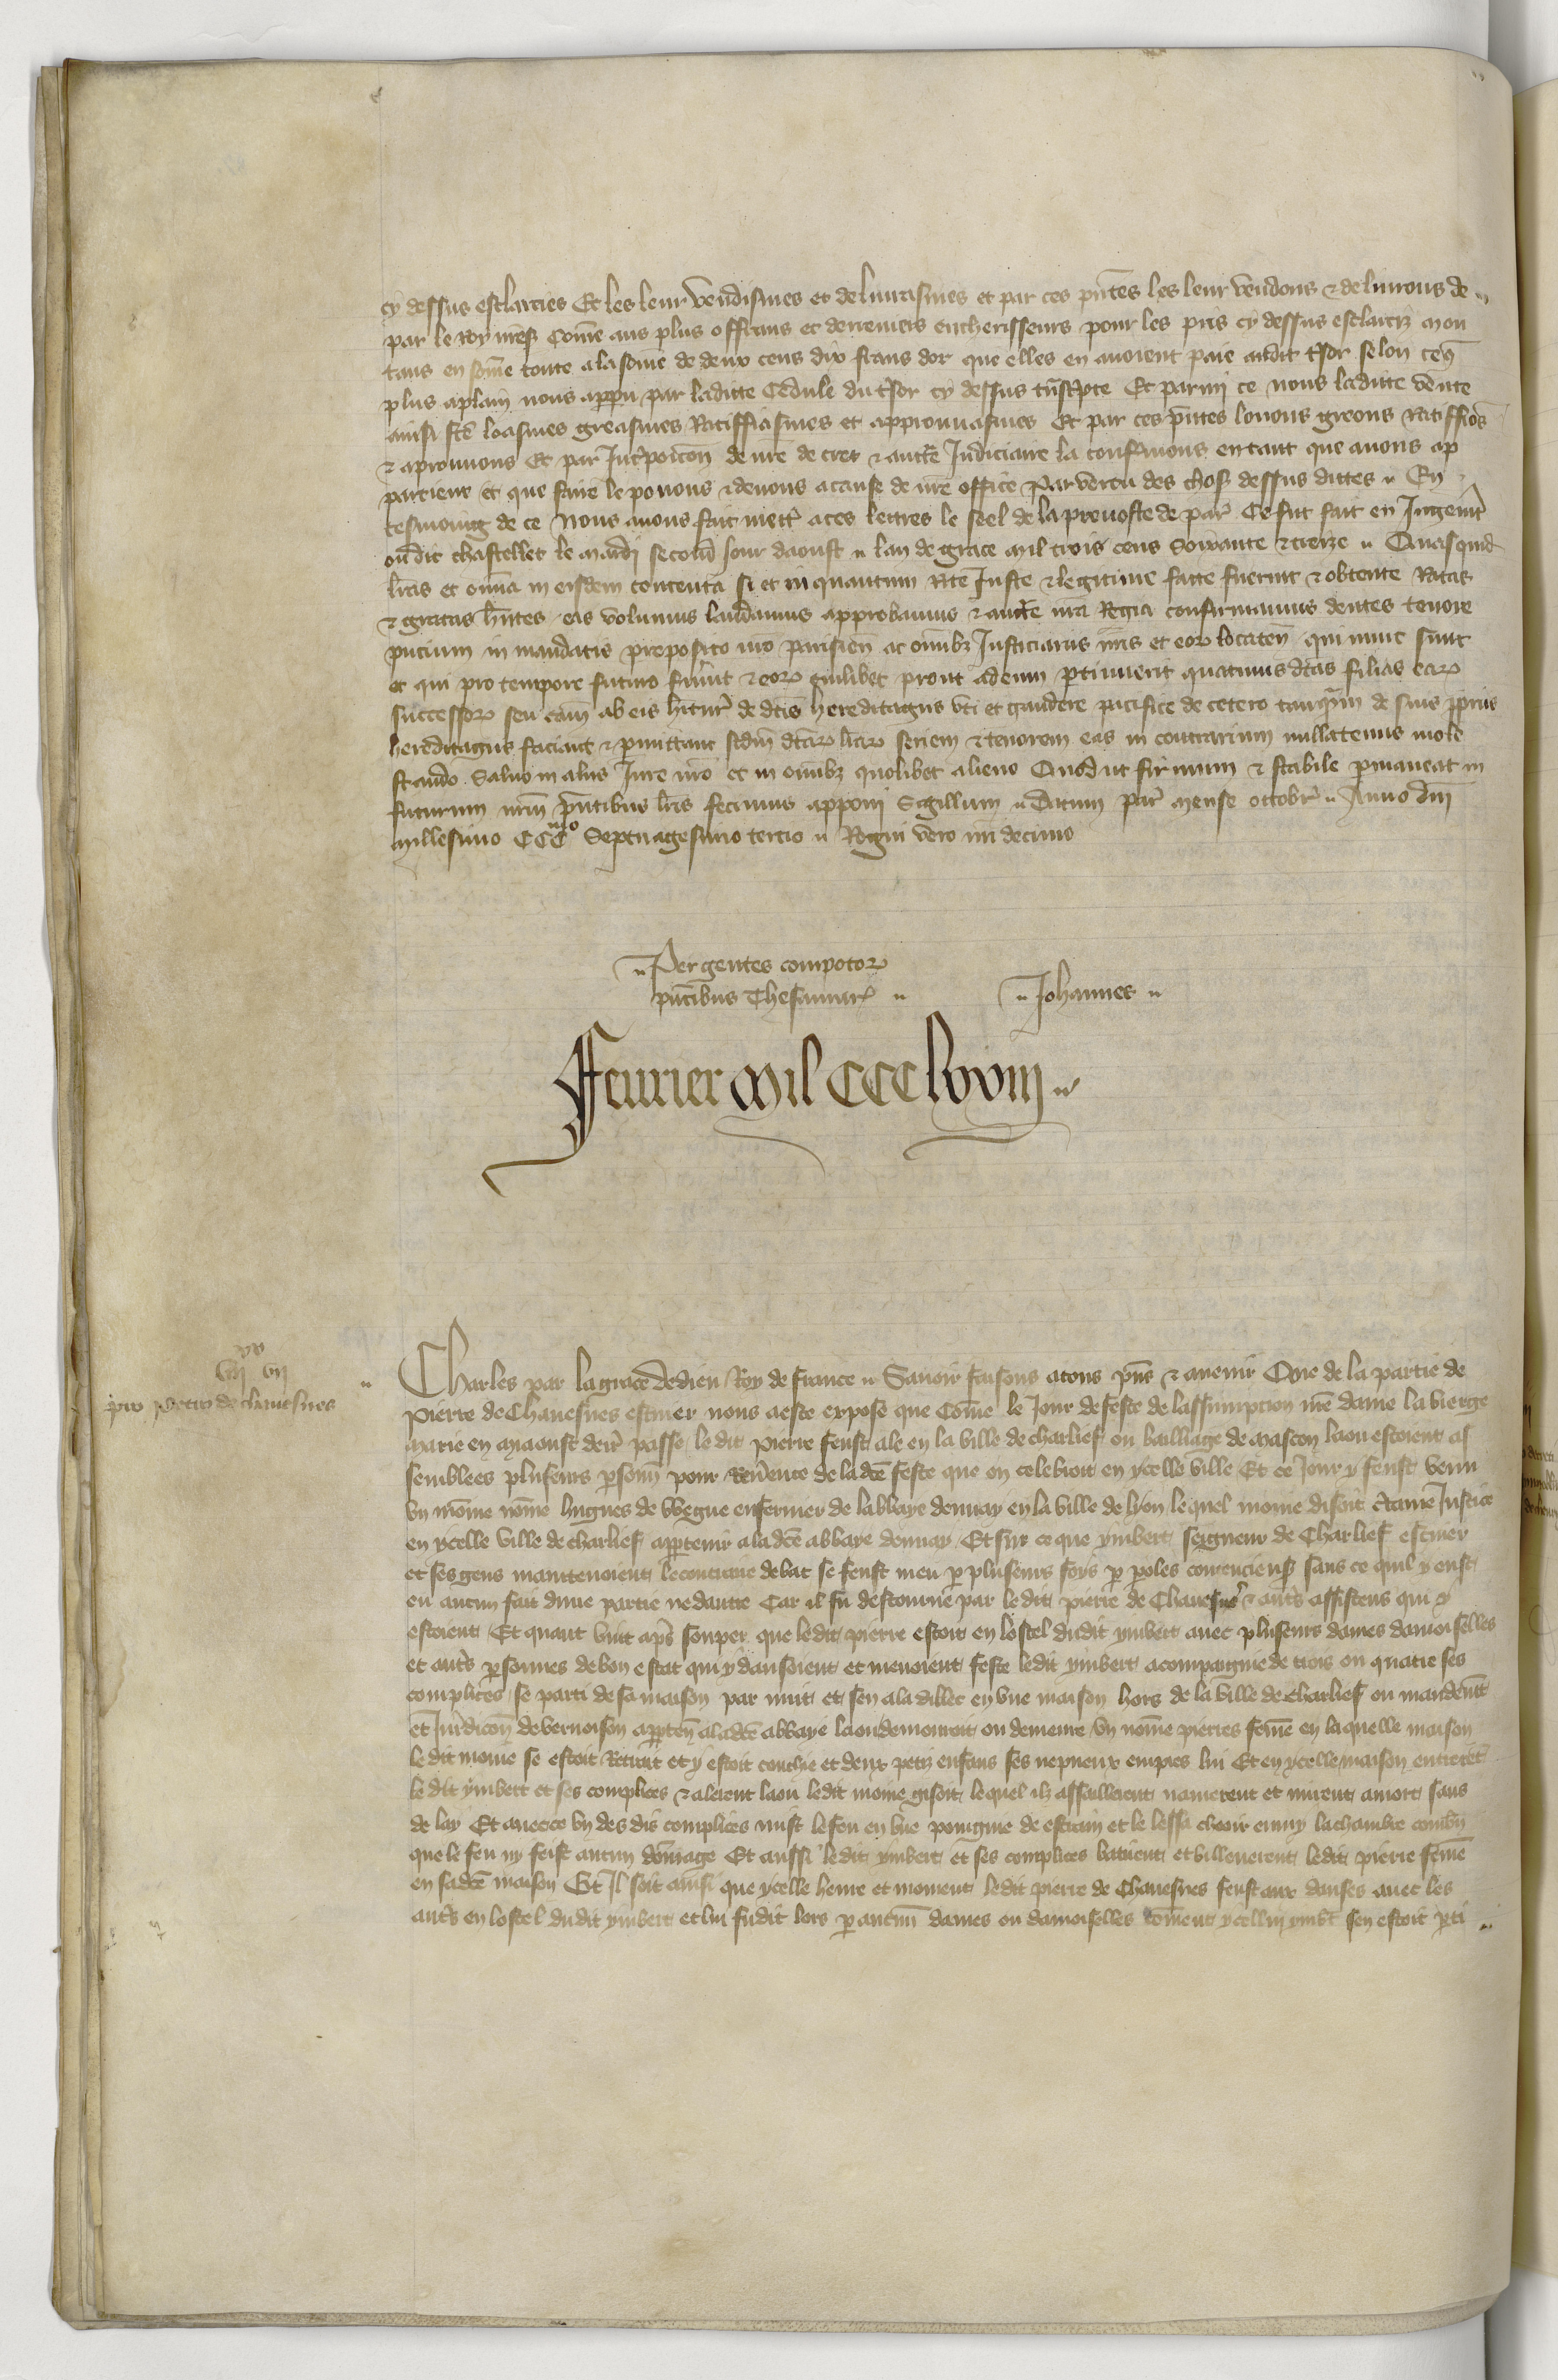 cy dessus esclarcies Et les leur vendismes et delivrasmes et par ces pñtes les leur vendons & delivrons de
par le Roy nr̃e sr̃ Com̃e aus plus offrans et derreniers encherisseurs pour les pris cy dessus esclarciz mon
tans en som̃e toute a la som̃e de deux cens dix frans dor que elles en avoient paie audit tr̃sor selon ce q̃
plus aplain nous appru par laditte Cedule du tr̃sor cy dessus tñscr̃pte Et parmi ce nous laditte vente
ainsi fcẽ loasmes greasmes Ratiffiasmes et approuvasmes Et par ces p̃ntes louons greons Ratiffiõs
& aprouvons Et par Int̃posicõn de nr̃e decret & auctẽ Judiciaire la confermons entant que a nous ap
partient et que faire le povons & devons acause de nr̃e office Par vertu des chos̃ dessus dittes En
tesmoing de ce Nous avons fait mettr̃ a ces lettres le seel de la prevoste de par̃ Ce fut fait en Jugem̃t
ou dit chastellet le mardi second Jour daoust lan de grace mil trois cens Soixante & treize Quasquid̃
lr̃as et om̃ia in eisdem contenta si et in quantum rite Juste & legitime facte fuerint & obtente Ratas
& gratas hñtes eas volumus laudamus approbamus & auctẽ nr̃a Regia confirmamus dentes tenore
pñcium in mandatis preposito nr̃o parisien̄ ac om̃ibz Justiciariis nr̃is et eorꝝ locaten̄ qui nunc sunt
et qui pro tempore futuro fuer̃int & eorꝝ cuilibet prout ad eum ptinuerit quatinus dc̃as filias earꝝ
successorꝝ seu cãm ab eis hitur̃ de dc̃is hereditagiis uti et gaudere pacifice de cetero tanq̃m de suis ppriis
hereditagiis faciant & pmittant scd̃m dc̃arꝝ lr̃arꝝ seriem & tenorem eas in contrarium nullatenus mole
stando Salvo in aliis Jure nr̃o et in om̃ibz quolibet alieno Quod ut firmum & stabile pmaneat in
futurum nr̃m p̃ntibus lr̃is fecimus apponi Sigillum Datum par̃ mense octobr̃ Anno dñi
millesimo CCCmo Septuagesimo tercio Regni vero nr̃i decimo
Per gentes compotorꝝ
pñtibus Thesaurar̃
Johannes
Fevrier mil CCC lxviii
xx
vii vii
pro petro de chavesnes
Charles par la grace de dieu Roy de france Savoir faisons a tous p̃ns & avenir Que de la partie de
Pierre de Chavesnes escuier nous a este expose que Com̃e le Jour de feste de lassumption nr̃e dame la vierge
marie en myaoust derr̃ passe le dit pierre feust ale en la ville de charlief ou bailliage de mascon laou estoient as
semblees pluseurs psonñ pour Rev̄ence de la dc̃e feste que on celebroit en ycelle ville Et ce Jour y feust venu
un moine nom̃e hugues de Wegue enfermer de labbaye dennay en la ville de lyon lequel moine disoit c̃taine Justice
en ycelle ville de charlief appartenir a la dc̃e abbaye dennay Et sur ce que ymbert seigneur de Charlief escuier
et ses gens maintenoient le contraire debat se feust meu p pluseurs fois p poles contencieus̃ sans ce quil y eust
eu aucun fait dune partie ne dautre Car il fu destourne par le dit pierre de Chavesnes & autr̃s assistens qui y
estoient Et quant vint aprs̃ souper que ledit pierre estoit en lostel dudit ymbert avec pluseurs dames damoiselles
et autr̃s psonnes de bon estat qui y dansoient et menoient feste ledit ymbert acompaignie de trois ou quatre ses
complices se parti de sa maison par nuit et sen ala dillec en une maison hors de la ville de charlief ou mandem̃t
et Jurdicõn de vernoison apparten̄ a la dc̃e abbaye laou demouroit ou demeure un nom̃e pierres fem̃e en laquelle maison
le dit moine se estoit Retrait et y estoit couchie et deux petiz enfans ses nepveux empres lui Et en ycelle maison entrer̃t
le dit ymbert et ses complices & alerent laou ledit moine gisoit lequel ilz assaillirent navrerent et mirent a mort sans
delay Et avec ce un des dis complices mist le feu en une poingnie de estrain et le lessa cheoir enmy la chambre combñ
que le feu ny feist aucun dõmage Et aussi ledit ymbert et ses complices batirent et villenerent ledit pierre fem̃e
en sa dc̃e maison Et Il soit ainsi que ycelle heure et moment ledit pierre de Chavesnes feust aux danses avec les
autr̃s en lostel dudit ymbert et lui fu dit lors p aucunñ dames ou damoiselles com̃ent ycellui ymbt̃ sen estoit pti